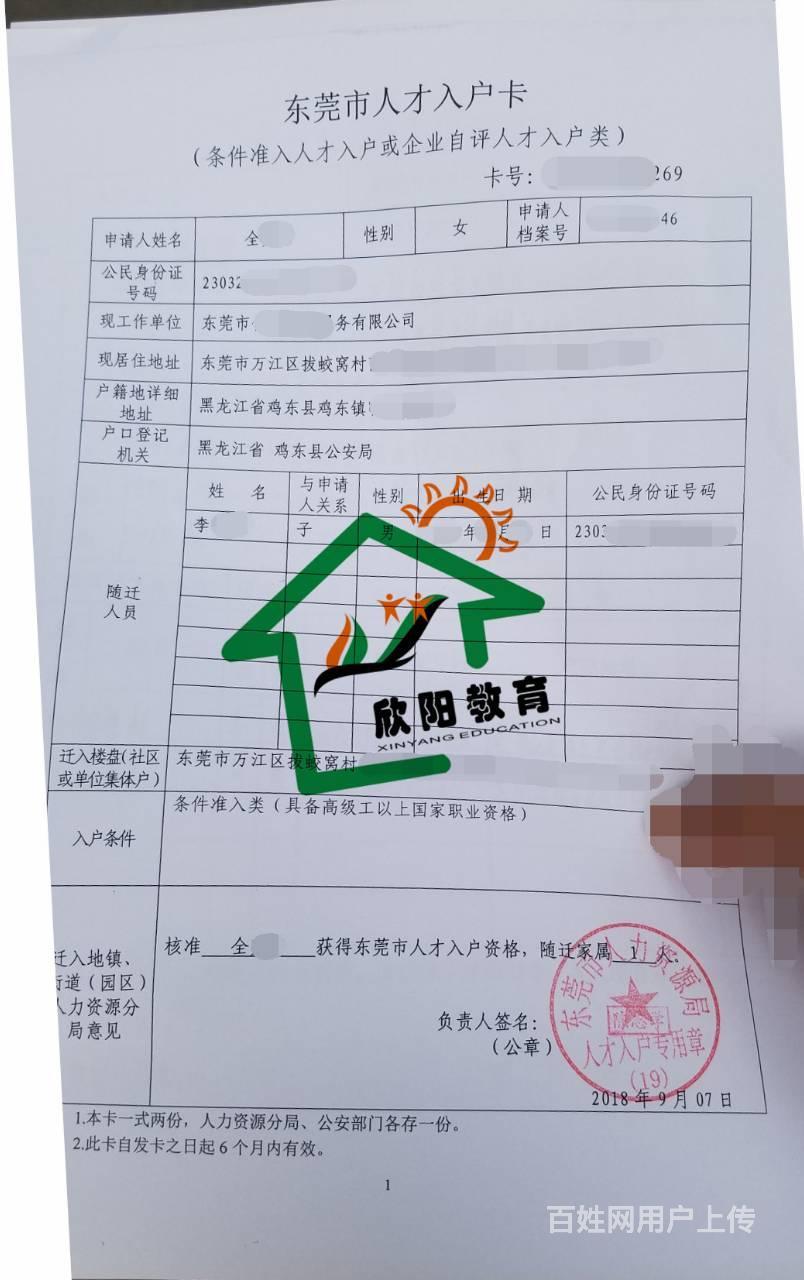 东莞市人才入户卡
(条件准入人才入户或企业自评人才入户类)
卡号: 269
申请人姓名 全 性别 女 申请人档案号 46
公民身份证号码 23032
现工作单位 东莞市 务有限公司
现居住地址 东莞市万江区拔蛟窝村
户籍地详细地址 黑龙江省鸡东县鸡东镇
户口登记机关 黑龙江省 鸡东县公安局
随迁人员
姓 名 与申请人关系 性别 出生日期 公民身份证号码
李 子 男 年 月 日 2303
欣阳教育
XINYANG EDUCATION
迁入楼盘(社区或单位集体户) 东莞市万江区拔蛟窝村
入户条件 条件准入类(具备高级工以上国家职业资格)
迁入地镇、街道(园区)人力资源分局意见
核准 全 获得东莞市人才入户资格，随迁家属 1 人。
负责人签名:
(公章)
东莞市人力资源局
人才入户专用章
(19)
2018年9月07日
1.本卡一式两份，人力资源分局、公安部门各存一份。
2.此卡自发卡之日起6个月内有效。
1
百姓网用户上传